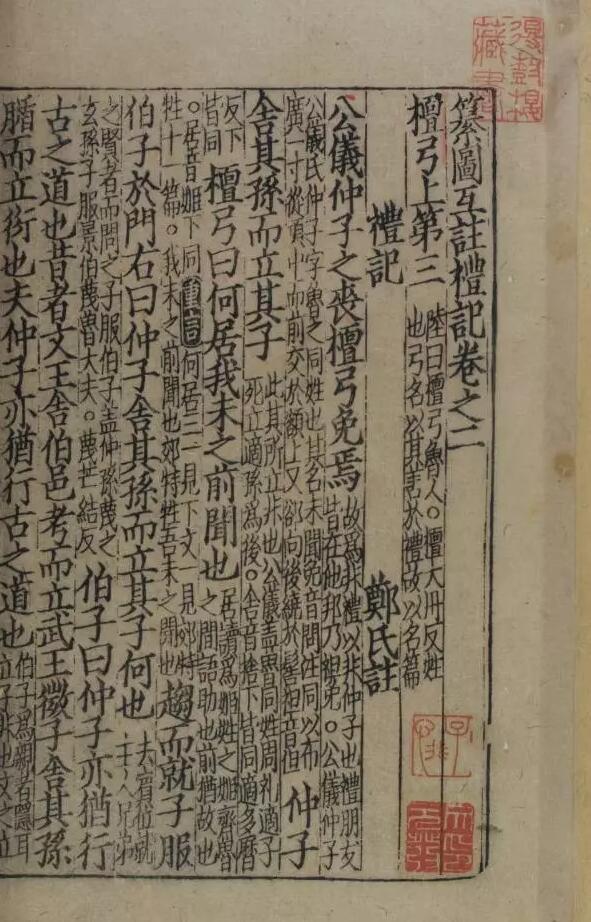 纂圖互註禮記卷之二
檀弓上第三 陸曰檀弓魯人。檀大丹反姓也弓名以其善於禮故以名篇
禮記 鄭氏註
公儀仲子之喪檀弓免焉 故爲非禮以非仲子也禮朋友皆在他邦乃袒免。公儀仲子
公儀氏仲子字魯之同姓也其名未聞免音問注同以布廣一寸從項中而前交於額上又卻向後繞於髻袒音但 仲子
舍其孫而立其子 此其所立非也公儀蓋魯同姓周礼適子死立適孫爲後。舍音捨下皆同適多曆
反下皆同 檀弓曰何居我未之前聞也 居讀爲姬姓之姬齊魯之間語助也前猶故也
。居音姬下同 何居三一見下文一見郊特牲十一篇。我未之前聞也郊特牲吾未之聞也 趨而就子服
伯子於門右曰仲子舍其孫而立其子何也 去賓位就主人兄弟
之賢者而問之子服伯子蓋仲孫蔑之玄孫子服景伯蔑魯大夫。蔑芒結反 伯子曰仲子亦猶行
古之道也昔者文王舍伯邑考而立武王微子舍其孫
腯而立衍也夫仲子亦猶行古之道也 伯子爲親者隱耳立子非也文之立